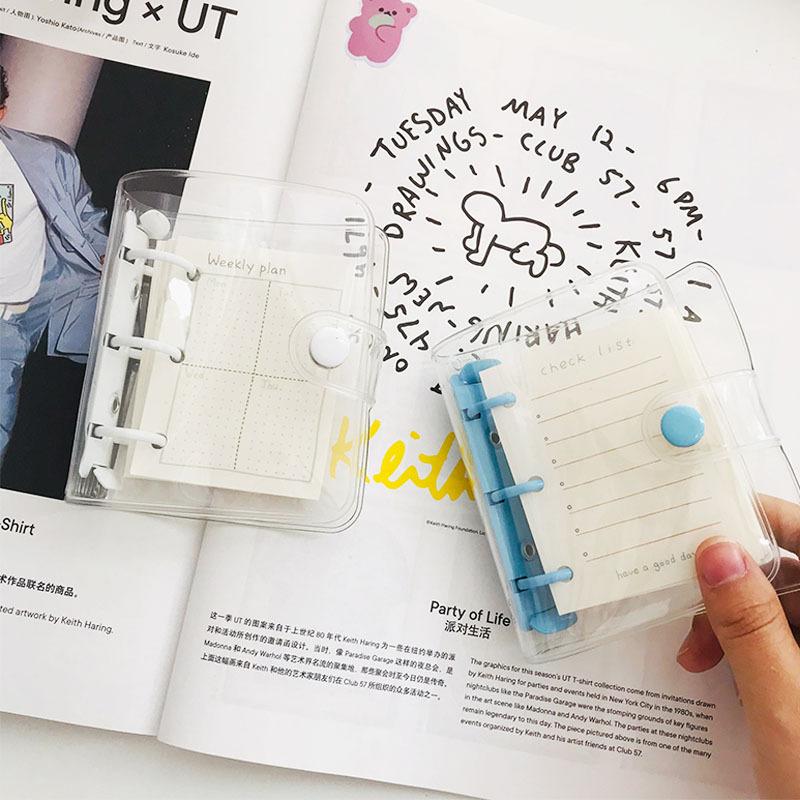 ing × UT
人物图) Yoshio Kato(Archives / 产品图) Text / 文字 Kosuke Ide
TUESDAY MAY 12- 6PM-
DRAWINGS- CLUB 57- 57
KEITH HARING
NEW
OR 475
Weekly plan
Mon.
Wed.
Thu.
check list
have a good day
Keith
-Shirt
术作品联名的商品。
ted artwork by Keith Haring.
这一季 UT 的图案来自于上世纪 80 年代 Keith Haring 为一些在纽约举办的派
对和活动所创作的邀请函设计。当时，像 Paradise Garage 这样的夜总会，是
Madonna 和 Andy Warhol 等艺术界名流的聚集地，那些聚会时至今日仍是传奇。
上面这幅画来自 Keith 和他的艺术家朋友们在 Club 57 所组织的众多活动之一。
Party of Life
派对生活
The graphics for this season's UT T-shirt collection come from invitations drawn
by Keith Haring for parties and events held in New York City in the 1980s, when
nightclubs like the Paradise Garage were the stomping grounds of key figures
in the art scene like Madonna and Andy Warhol. The parties at these nightclubs
remain legendary to this day. The piece pictured above is from one of the many
events organized by Keith and his artist friends at Club 57.